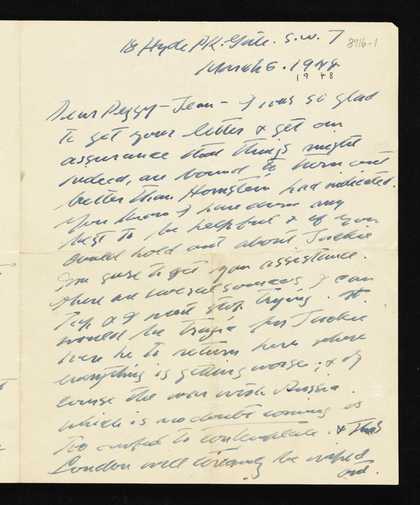 18 Hyde Pk. Gate. S.W. 7
8716-1
March 6. 1948
1948
Dear Peggy-Jean - I was so glad
to get your letter & get an
assurance that things might
indeed, are bound to turn out
better than Hornstein had indicated.
You know I have done my
best to be helpful & if you
could hold out about Jackie
I'm sure to get your assistance.
There are several sources I can
tap & I wont stop trying. It
would be tragic for Jackie
were he to return here where
everything is getting worse; & of
course the war with Russia.
which is no doubt coming is
too awful to contemplate. & that
London will be wiped
out.